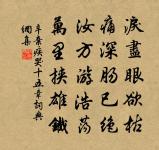 淚盡眼欲枯
痛深腸已絕
汝方遊浩蕩
萬里挾雄鐵
辛棄疾哭十五章詞典
網集